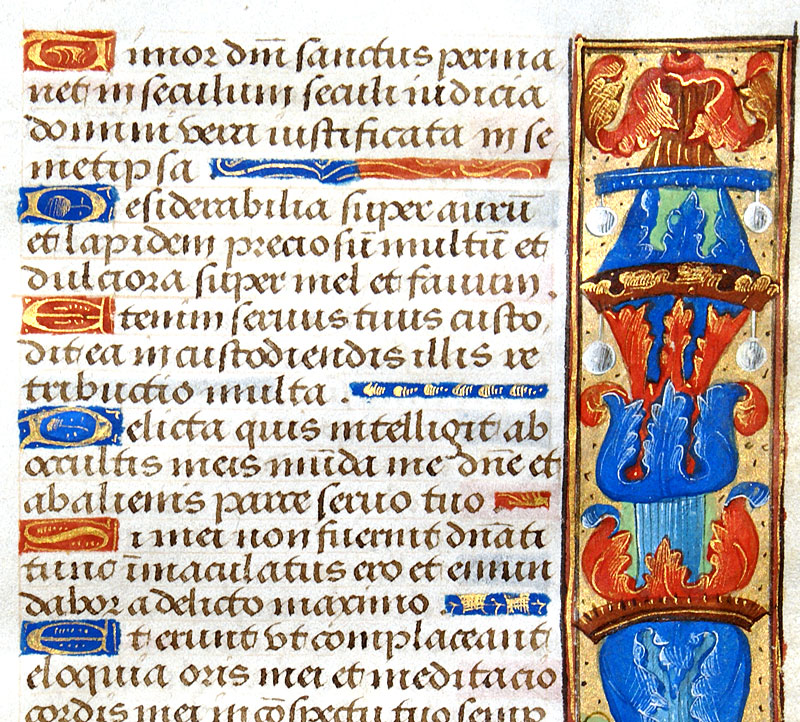 Timor dm̄ sanctus perma
net in seculum seculi iudicia
domini vera iustificata in se
metipsa
Desiderabilia super aurū
et lapidem preciosū multū et
dulciora super mel et fauum.
Etenim seruus tuus custo
dit ea in custodiendis illis re
tributio multa.
Delicta quis intelligit ab
occultis meis mūda me dn̄e et
ab alienis parce seruo tuo
Si mei non fuerint dn̄ati
tunc īmaculatus ero et emun
dabor a delicto maximo.
Et erunt vt complaceant
eloquia oris mei et meditacio
cordis mei in cōspectu tuo semp